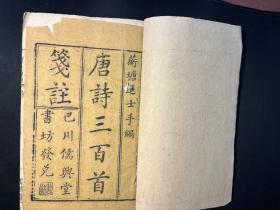 蘅塘退士手編
唐詩三百首
箋註
巴川儒興堂
書坊發兌